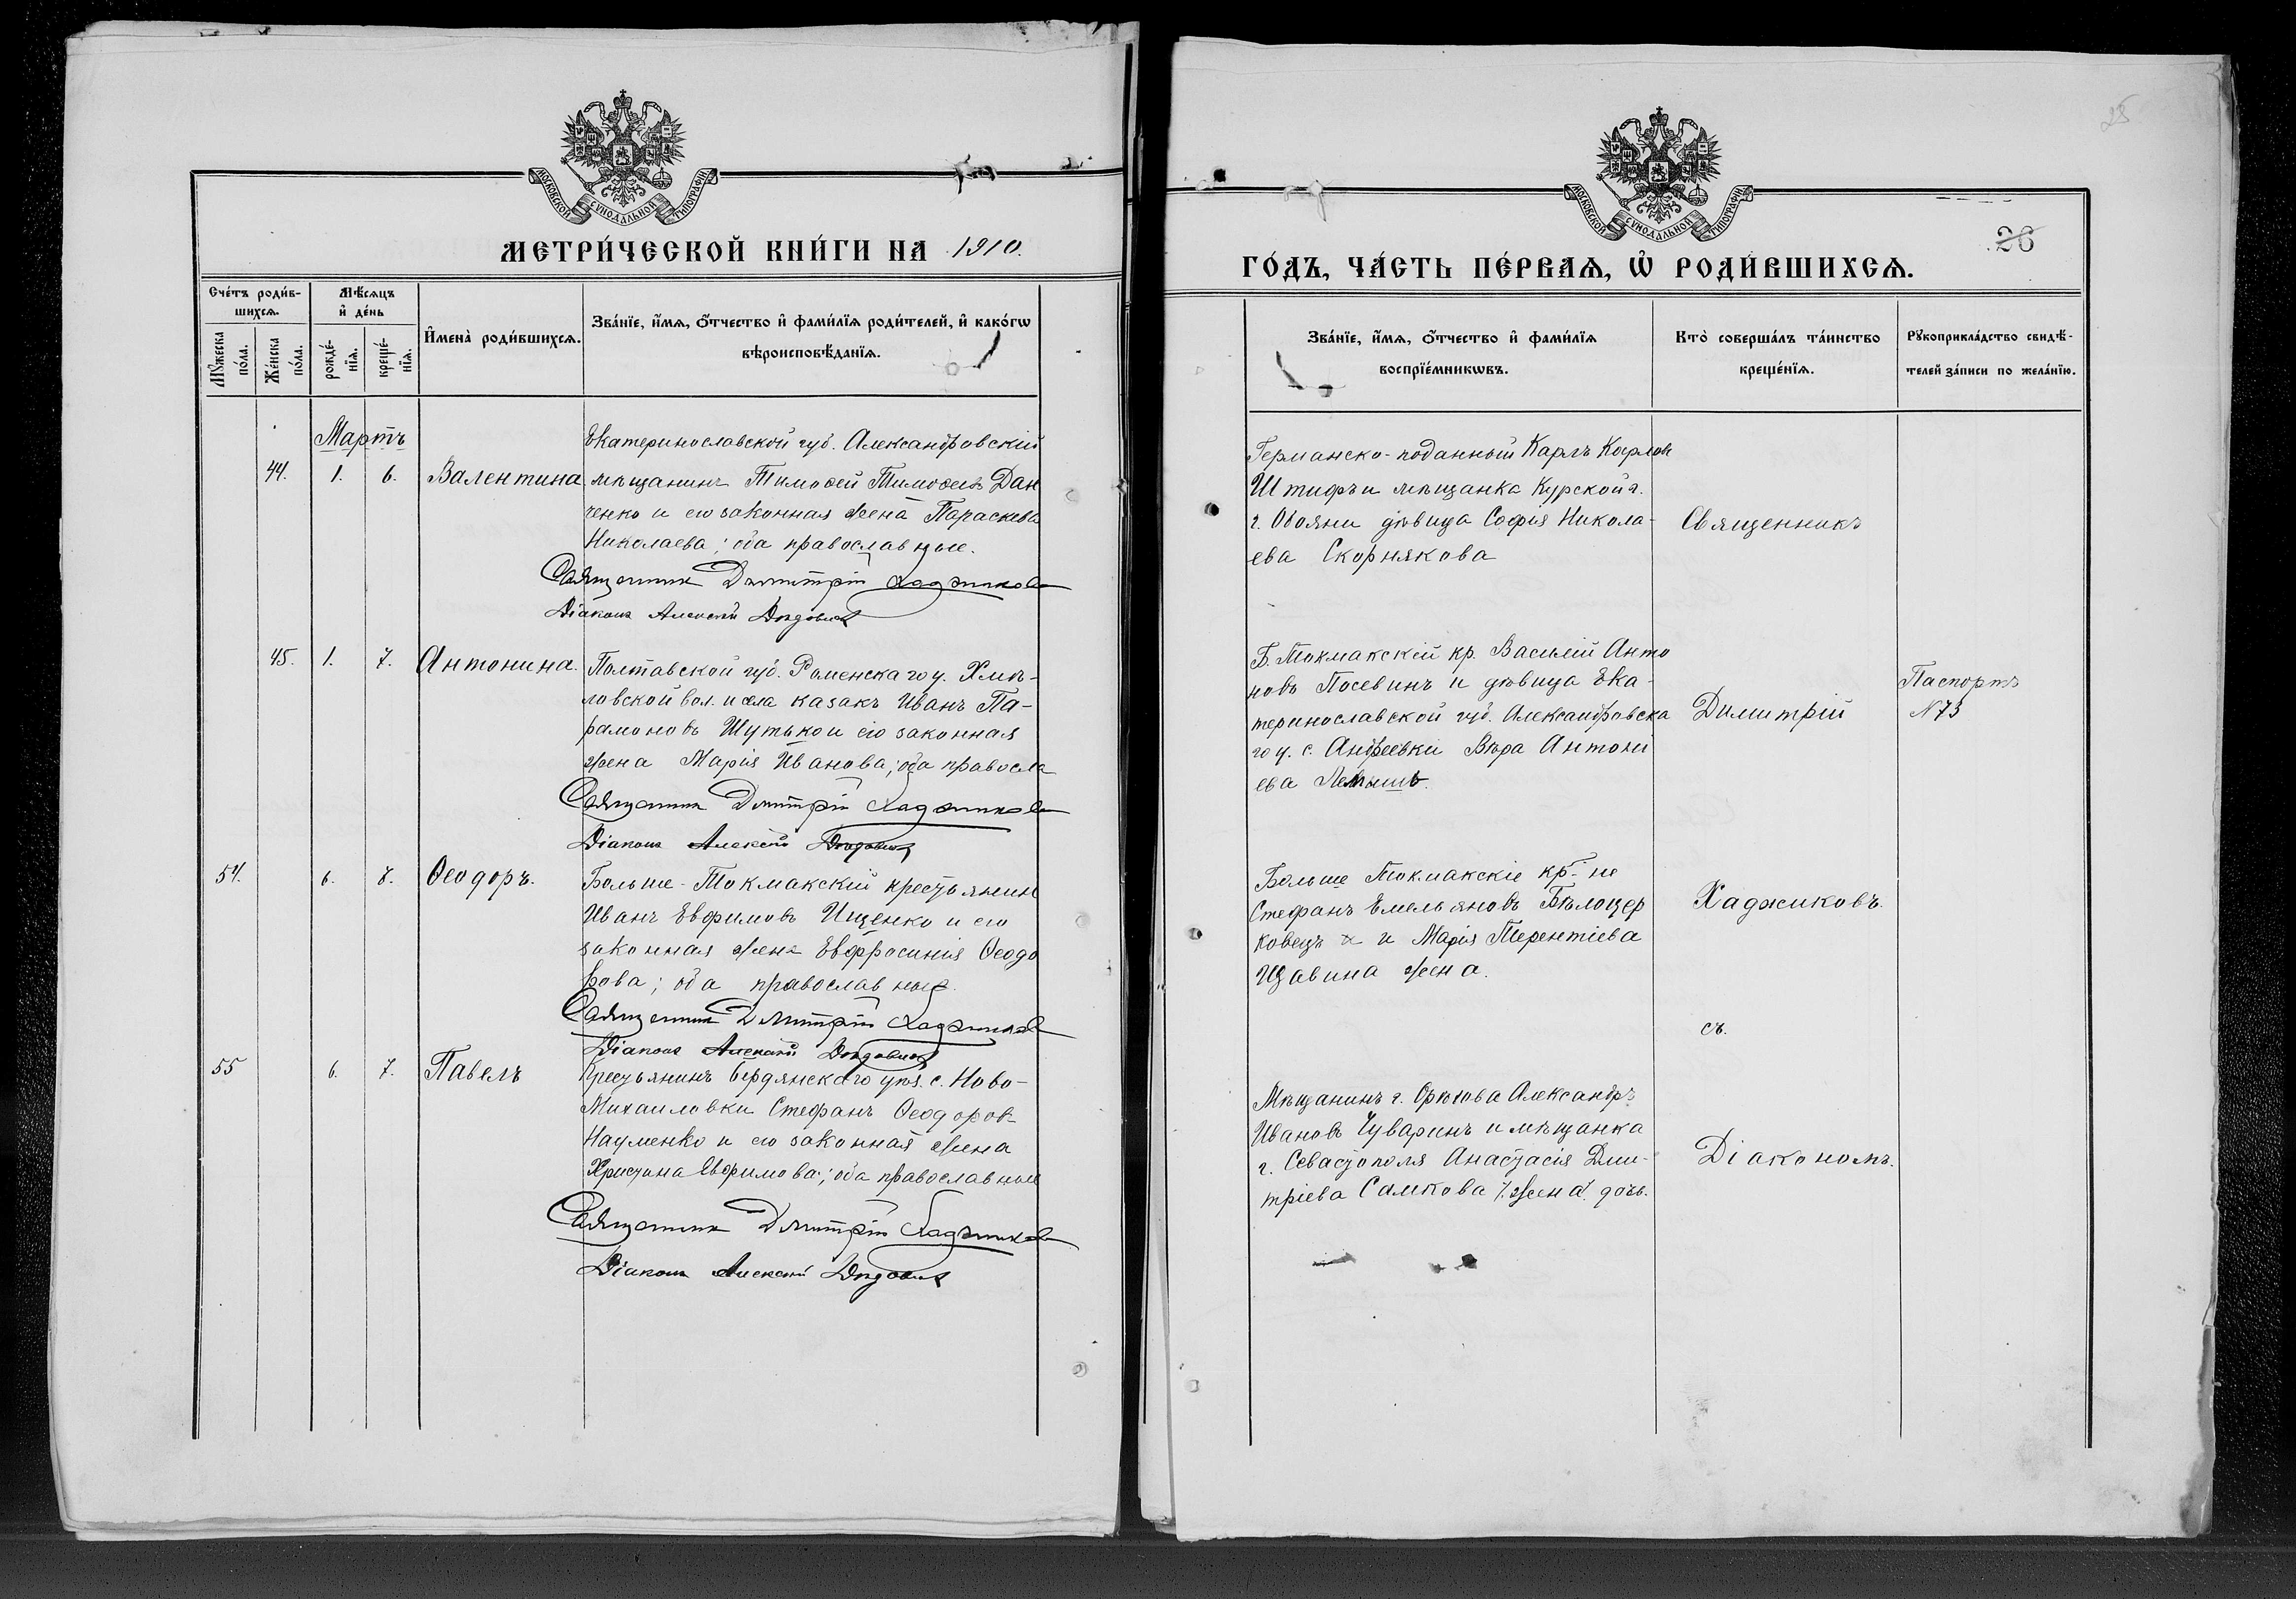 МОСКОВСКОЙ СУНОДАЛЬНОЙ ТИПОГРАФІИ
МЕТРИ́ЧЕСКОЙ КНИ́ГИ НА 1910.
Сче́тъ роди́в-
шихсѧ.
Мѣ́сѧцъ
и҆ де́нь
Мꙋ́жеска по́ла.
Же́нска по́ла.
рожде́-
нїѧ.
креще́-
нїѧ.
И҆мена̀ роди́вшихсѧ.
Зва́нїе, и҆́мѧ, ѻ҆́тчество и҆ фами́лїѧ роди́телей, и҆ како́гѡ
вѣроисповѣ́данїѧ.
Мартъ
44. 1. 6. Валентина
Екатеринославской губ. Александровскій
мѣщанинъ Тимоѳей Тимоѳеевъ Дан
ченко и его законная жена Параскева
Николаева; оба православные.
Священникъ Димитрій Хаджиковъ
Діаконъ Алексѣй
45. 1. 7. Антонина.
Полтавской губ. Роменскаго у. Хмѣ-
ловской вол. и села казакъ Иванъ Па-
рамоновъ Шутько и его законная
жена Марія Иванова; оба правосла
Священникъ Димитрій Хаджиковъ
Діаконъ Алексѣй
54. 6. 7. Ѳеодоръ.
Больше-Токмакскій крестьянинъ
Иванъ Евфимовъ Ищенко и его
законная жена Евфросинія Ѳеодо
рова; оба православные.
Священникъ Димитрій Хаджиковъ
Діаконъ Алексѣй
55 6. 7. Павелъ
Крестьянинъ Бердянскаго уѣз. с. Ново-
Михаиловки Стефанъ Ѳеодоров
Науменко и его законная жена
Христина Евфимова; оба православные
Священникъ Димитрій Хаджиковъ
Діаконъ Алексѣй
25
МОСКОВСКОЙ СУНОДАЛЬНОЙ ТИПОГРАФІИ
26
ГО́ДЪ, ЧА́СТЬ ПЕ́РВАѦ, Ѽ РОДИ́ВШИХСѦ.
Зва́нїе, и҆́мѧ, ѻ҆́тчество и҆ фами́лїѧ
воспрїе́мникѡвъ.
Кто̀ соверша́лъ та́инство
креще́нїѧ.
Рꙋкоприкла́дство свидѣ́-
телей за́писи по жела́нїю.
Германско-поданный Карлъ Карлов
Штифъ и мѣщанка Курской г.
г. Обояни дѣвица Софія Никола-
ева Скорнякова
Священникъ
Б. Токмакскій кр. Василій Анто
новъ Посевинъ и дѣвица Ека-
теринославской губ. Александровска
го у. с. Андреевки Вѣра Антоні
ева
Димитрій
Паспортъ
№73
Больше Токмакскіе кр-не
Стефанъ Емельяновъ Бѣлоцер
ковецъ и Марія Терентіева
жена.
Хаджиковъ.
съ.
Мѣщанинъ г. Орѣхова Александръ
Ивановъ Чуваринъ и мѣщанка
г. Севастополя Анастасія Дми-
тріева Самкова жена дочь.
Діакономъ.